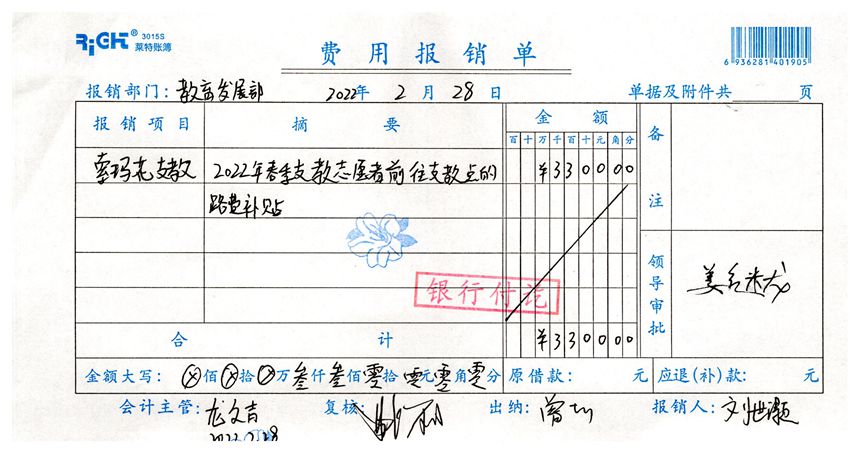 RIGHT® 3015S 莱特账簿
费用报销单
6 936281 401905
报销部门：教育发展部 2022年 2 月 28 日 单据及附件共 页
报销项目 摘要 金额 备注
百 十 万 千 百 十 元 角 分
索玛花支教 2022年春季支教志愿者前往支教点的 ¥330000
路费补贴
银行付讫
领导审批
合计 ¥330000
金额大写：ⓧ佰ⓧ拾ⓧ万叁仟叁佰零拾零元零角零分 原借款： 元 应退(补)款： 元
会计主管：龙文吉 复核： 出纳： 报销人：
2022.2.28